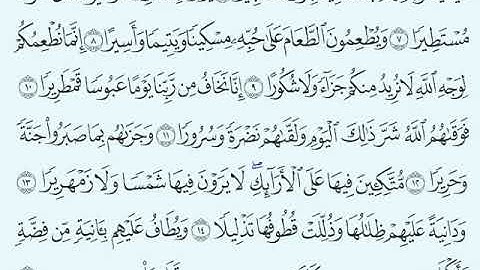 مُسْتَطِيرًا ٧ وَيُطْعِمُونَ ٱلطَّعَامَ عَلَىٰ حُبِّهِۦ مِسْكِينًا وَيَتِيمًا وَأَسِيرًا ٨ إِنَّمَا نُطْعِمُكُمْ
لِوَجْهِ ٱللَّهِ لَا نُرِيدُ مِنكُمْ جَزَآءً وَلَا شُكُورًا ٩ إِنَّا نَخَافُ مِن رَّبِّنَا يَوْمًا عَبُوسًا قَمْطَرِيرًا ١٠
فَوَقَىٰهُمُ ٱللَّهُ شَرَّ ذَٰلِكَ ٱلْيَوْمِ وَلَقَّىٰهُمْ نَضْرَةً وَسُرُورًا ١١ وَجَزَىٰهُم بِمَا صَبَرُوا۟ جَنَّةً
وَحَرِيرًا ١٢ مُّتَّكِـِٔينَ فِيهَا عَلَى ٱلْأَرَآئِكِ ۖ لَا يَرَوْنَ فِيهَا شَمْسًا وَلَا زَمْهَرِيرًا ١٣
وَدَانِيَةً عَلَيْهِمْ ظِلَٰلُهَا وَذُلِّلَتْ قُطُوفُهَا تَذْلِيلًا ١٤ وَيُطَافُ عَلَيْهِم بِـَٔانِيَةٍ مِّن فِضَّةٍ